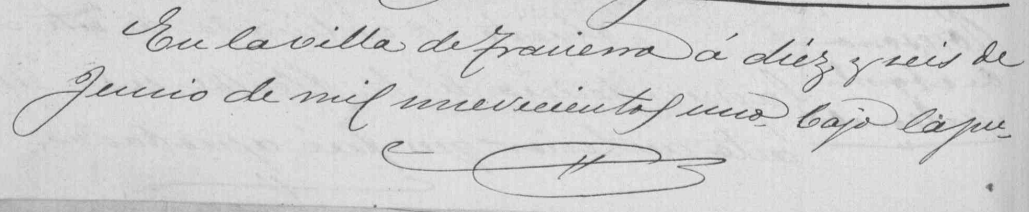 En la villa de Zraviesa á diéz y seis de
Junio de mil nuevecientos uno. bajo la pre-